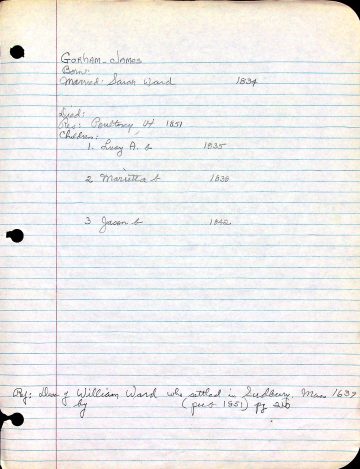 GORHAM - JAMES
Born:
Married: Sarah Ward 1834
Died:
Res: Poultney, Vt 1851
Children:
1. Lucy A. b 1835
2 Marietta b 1838
3 Jason b 1842
Ref: of William Ward who settled in Sudbury, Mass 1639
by (pub 1851) pg 210